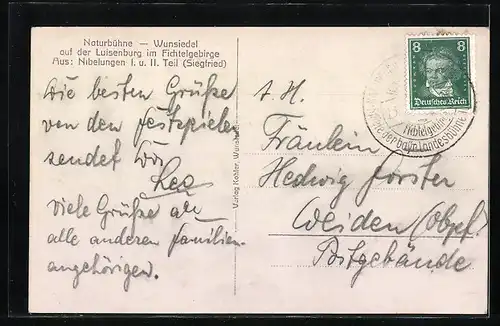 Naturbühne — Wunsiedel
auf der Luisenburg im Fichtelgebirge
Aus: Nibelungen I. u. II. Teil (Siegfried)
Die besten Grüße
von den Festspielen
sendet Dir
Leo
Viele Grüße an
alle anderen Familien-
angehörigen.
Verlag Kohler, Wunsiedel
8 8
Deutsches Reich
der bayr. Landesbühne
Fräulein
Hedwig Forster
Weiden (Obpf.)
Postgebäude